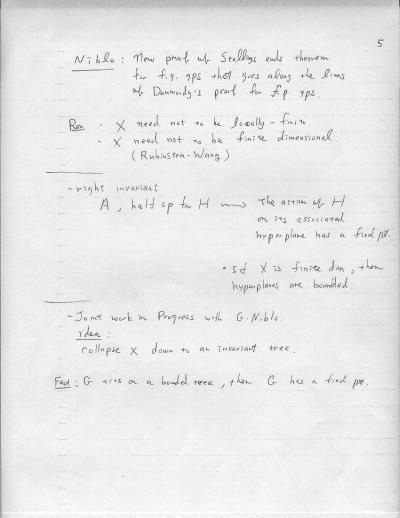 5
Niblo : New proof of Stallings ends theorem
for f.g. gps that goes along the lines
of Dunwoody's proof for f.p. gps.
Rem · X need not to be locally-finite
· X need not to be finite dimensional
(Rubinstein-Wang)
- right invariant
A, half sp for H ⟿ The action of H
on its associated
hyperplane has a fixed pt.
• If X is finite dim, then
hyperplanes are bounded.
- Joint work in Progress with G. Niblo.
idea :
collapse X down to an invariant tree.
Fact : G acts on a bonded tree, then G has a fixed pt.